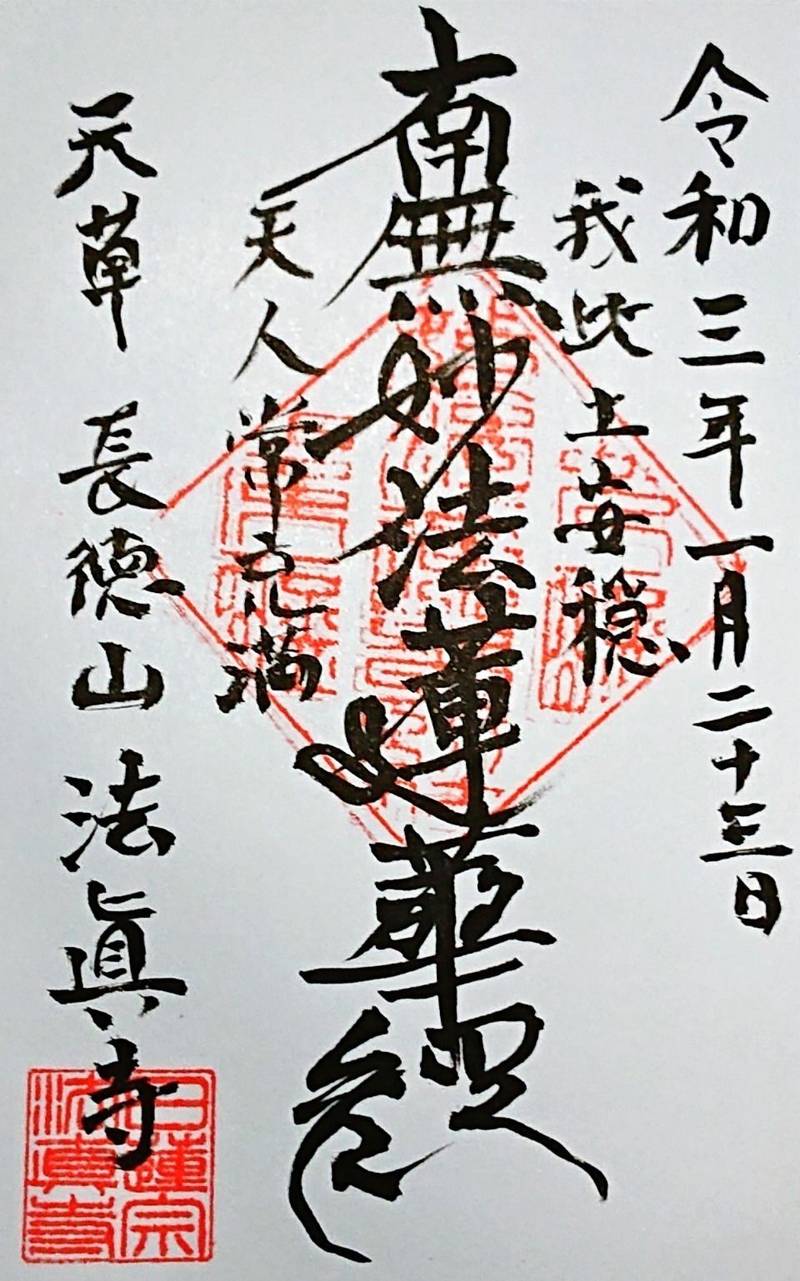 令和三年一月二十三日
我此土安穏
南無妙法蓮華経
天人常充満
天草 長徳山 法眞寺
日蓮宗
法真寺